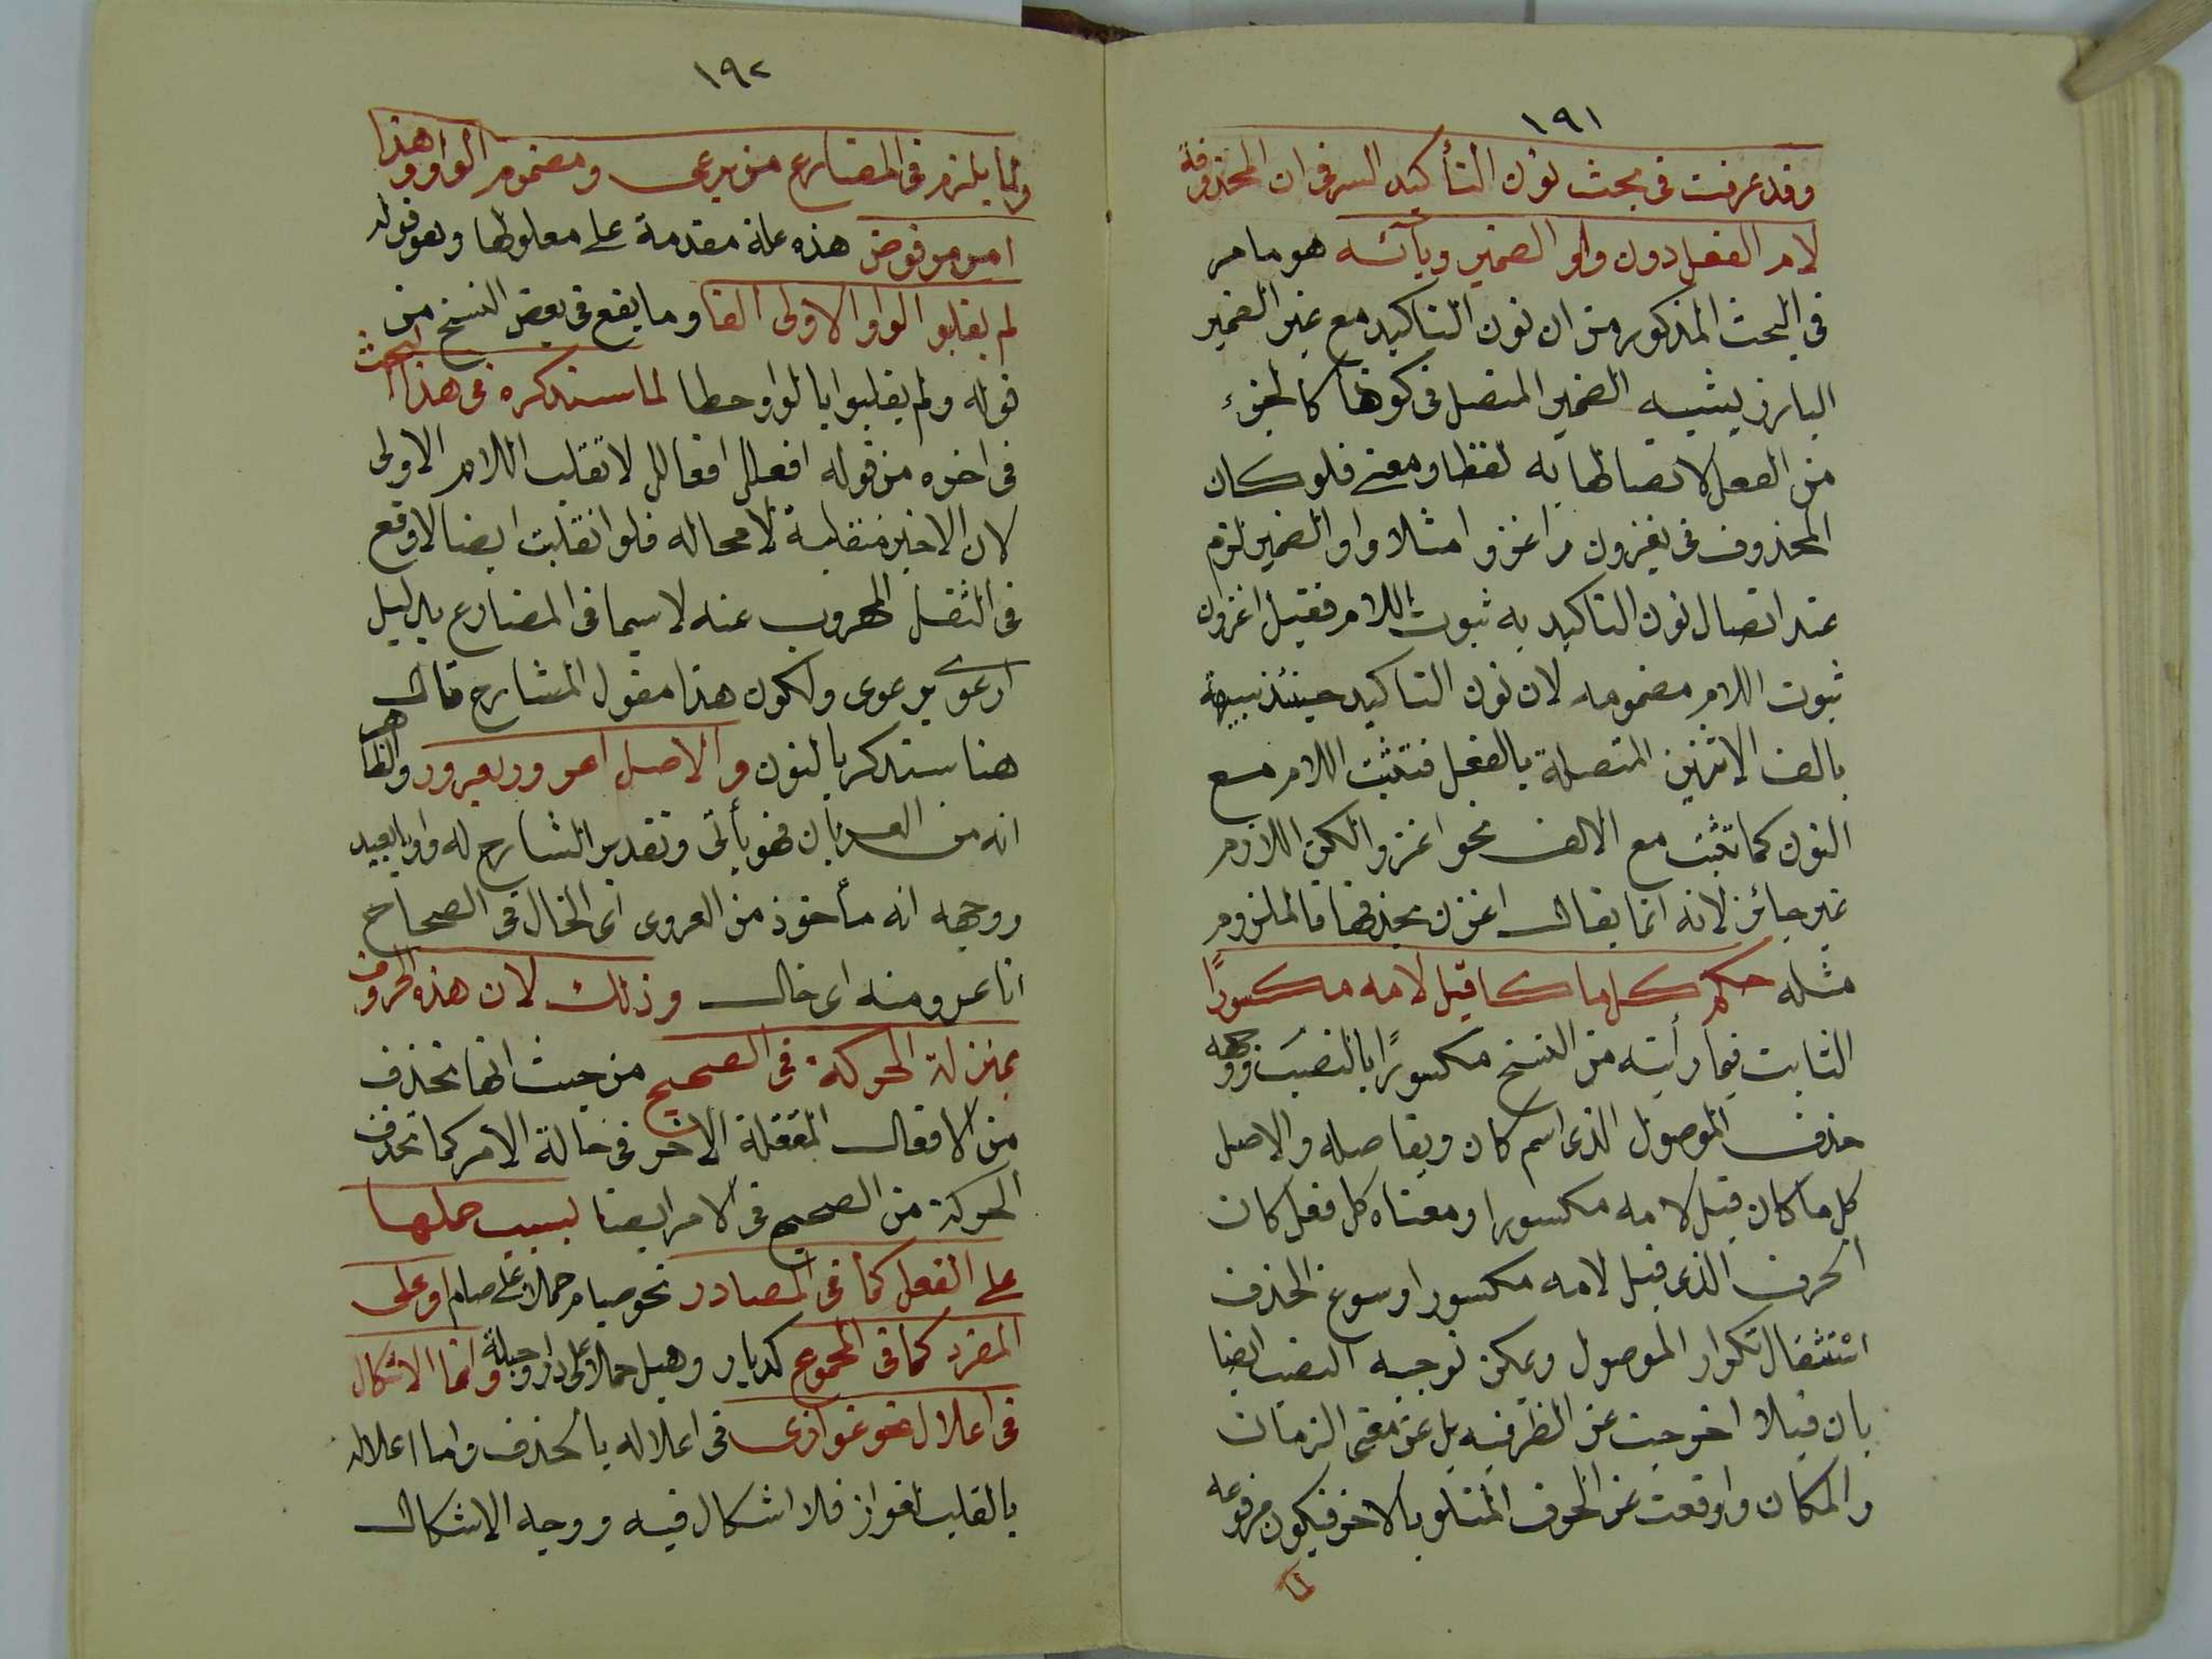 ١٩١
وقد عرفت فى بحث نون التأكيد السر فى ان المحذوفة
لام الفعل دون واو الضمير ويائه هو ما مر
في البحث المذكور من ان نون التاكيد مع غير الضمير
البارز يشبه الضمير المتصل فى كونها كالجزء
من الفعل لاتصالها به لفظا ومعنى فلو كان
المحذوف فى يغزون من اغزوا مثلا واو الضمير لزم
عند اتصال نون التاكيد به ثبوت اللام فقيل اغزون
ثبوت اللام مضمومه لان نون التاكيد حينئذ شبيهة
بالف الاثنين المتصلة بالفعل فتثبت اللام مع
النون كما تثبت مع الالف نحو اغزوا لكن اللازم
غير جائز لانه انما يقال اغزن بحذفها فالملزوم
مثله حكم كل ما كا قبل لامه مكسورًا
الثابت فيما رأيته من النسخ مكسورًا بالنصب ووجهه
حذف الموصول الذى اسم كان وبقا صله والاصل
كل ما كان قبل لامه مكسورا ومعناه كل فعل كان
الحرف الذى قبل لامه مكسورا وسوغ الحذف
استثقال تكرار الموصول ويمكن توجيه النصب ايضا
بان قبلا اخرجت عن الظرفيه بل عن معنى الزمان
والمكان واوقعت عن الحرف المتلو بالاخر فيكون مرفوعه
١٩٢
ولما يلزم فى المضارع من يرعى ومضموم الواو وهذا
امر مرفوض هذه علة مقدمة على معلولها وهو قوله
لم يقلبو الواو الاولى الفا وما يقع فى بعض النسخ من
قوله ولم يقلبوا بالواو خطا لما سنذكره فى هذا البحث
فى اخره من قوله افعلل افعالل لا تقلب اللام الاولى
لان الاخير منقلبة لا محاله فلو انقلبت ايضا لاوقع
فى الثقل المهروب عنه لا سيما فى المضارع بدليل
ارعوى يرعوى ولكون هذا مقول الشارح قال
هنا سنذكر بالنون والاصل اعرورو يعرورو والظاهر
انه من العريان فهو يأتى وتقدير الشارح له واويا بعيد
ووجهه انه مأخوذ من العروى اى الخال فى الصحاح
انا عرو منه اى خال وذلك لان هذه الحروف
بمنزلة الحركة فى الصحيح من حيث انها تحذف
من الافعال المعتلة الاخر فى حالة الامر كما تحذف
الحركة من الصحيح فى الامر ايضا لسبب حملها
على الفعل كما فى المصادر نحو صيام حملا على صام او على
المفرد كما فى المجموع كديار وحيل حملا على دار وحيلة وانما الاشكال
فى اعلال نحو غوازى فى اعلاله بالحذف واما اعلاله
بالقلب لغواز فلا اشكال فيه ووجه الاشكال